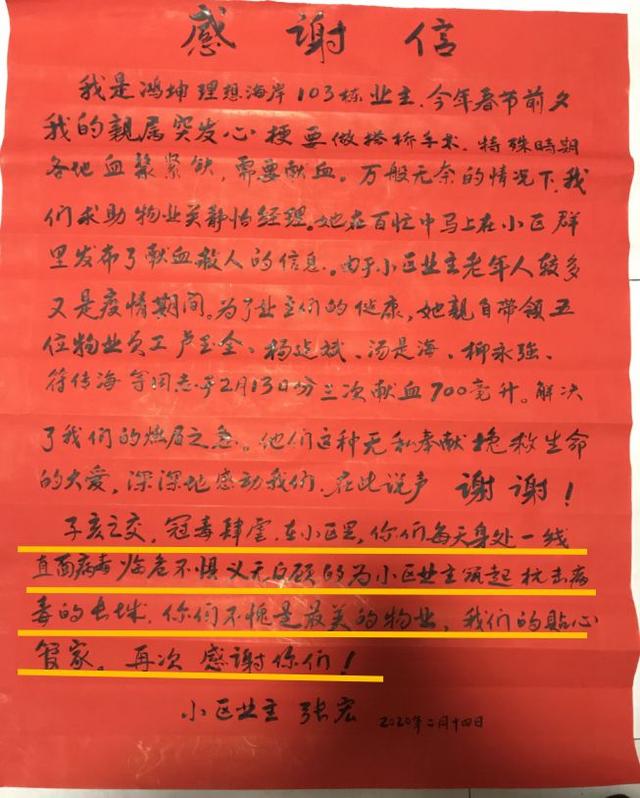 感谢信
我是鸿坤理想海岸103栋业主.今年春节前夕
我的親属突发心梗要做搭桥手术.特殊時期
各地血漿紧缺,需要献血。万般无奈的情况下,我
们求助物业吴静怡经理。她在百忙中马上在小区群
里发布了献血救人的信息.由于小区业主老年人较多
又是疫情期间。为了业主们的健康,她親自带领五
位物业员工卢圣全、杨廷斌、汤是海、柳永强、
符传海等同志于2月13日分三次献血700毫升。解决
了我们的燃眉之急。他们这种无私奉献挽救生命
的大爱,深深地感动我们.在此说声 谢谢!
子亥之交,冠毒肆虐.在小区里,你们每天身处一线
直面病毒临危不惧义无反顾的为小区业主筑起抗击病
毒的长城.你们不愧是最美的物业,我们的貼心
管家。再次感谢你们!
小区业主 张宏 2020年二月十四日